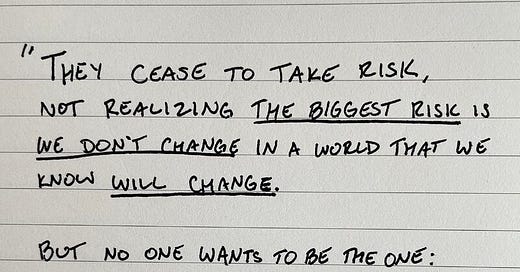 "THEY CEASE TO TAKE RISK,
NOT REALIZING THE BIGGEST RISK IS
WE DON'T CHANGE IN A WORLD THAT WE
KNOW WILL CHANGE.
BUT NO ONE WANTS TO BE THE ONE: